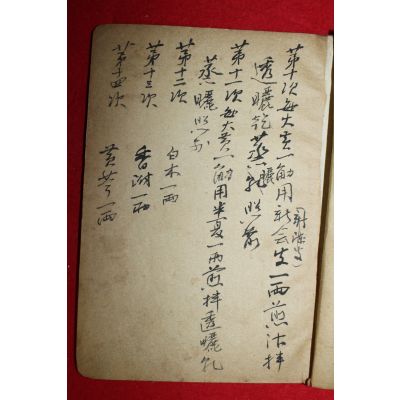 第十次每大黄一觔用新会皮一兩煎汁拌
透曬乾蒸曬乾照前
第十一次每大黄一觔用半夏一兩煎拌透曬乾
蒸曬照前
第十二次 白术一兩
第十三次 香附一兩
第十四次 黄芩一兩